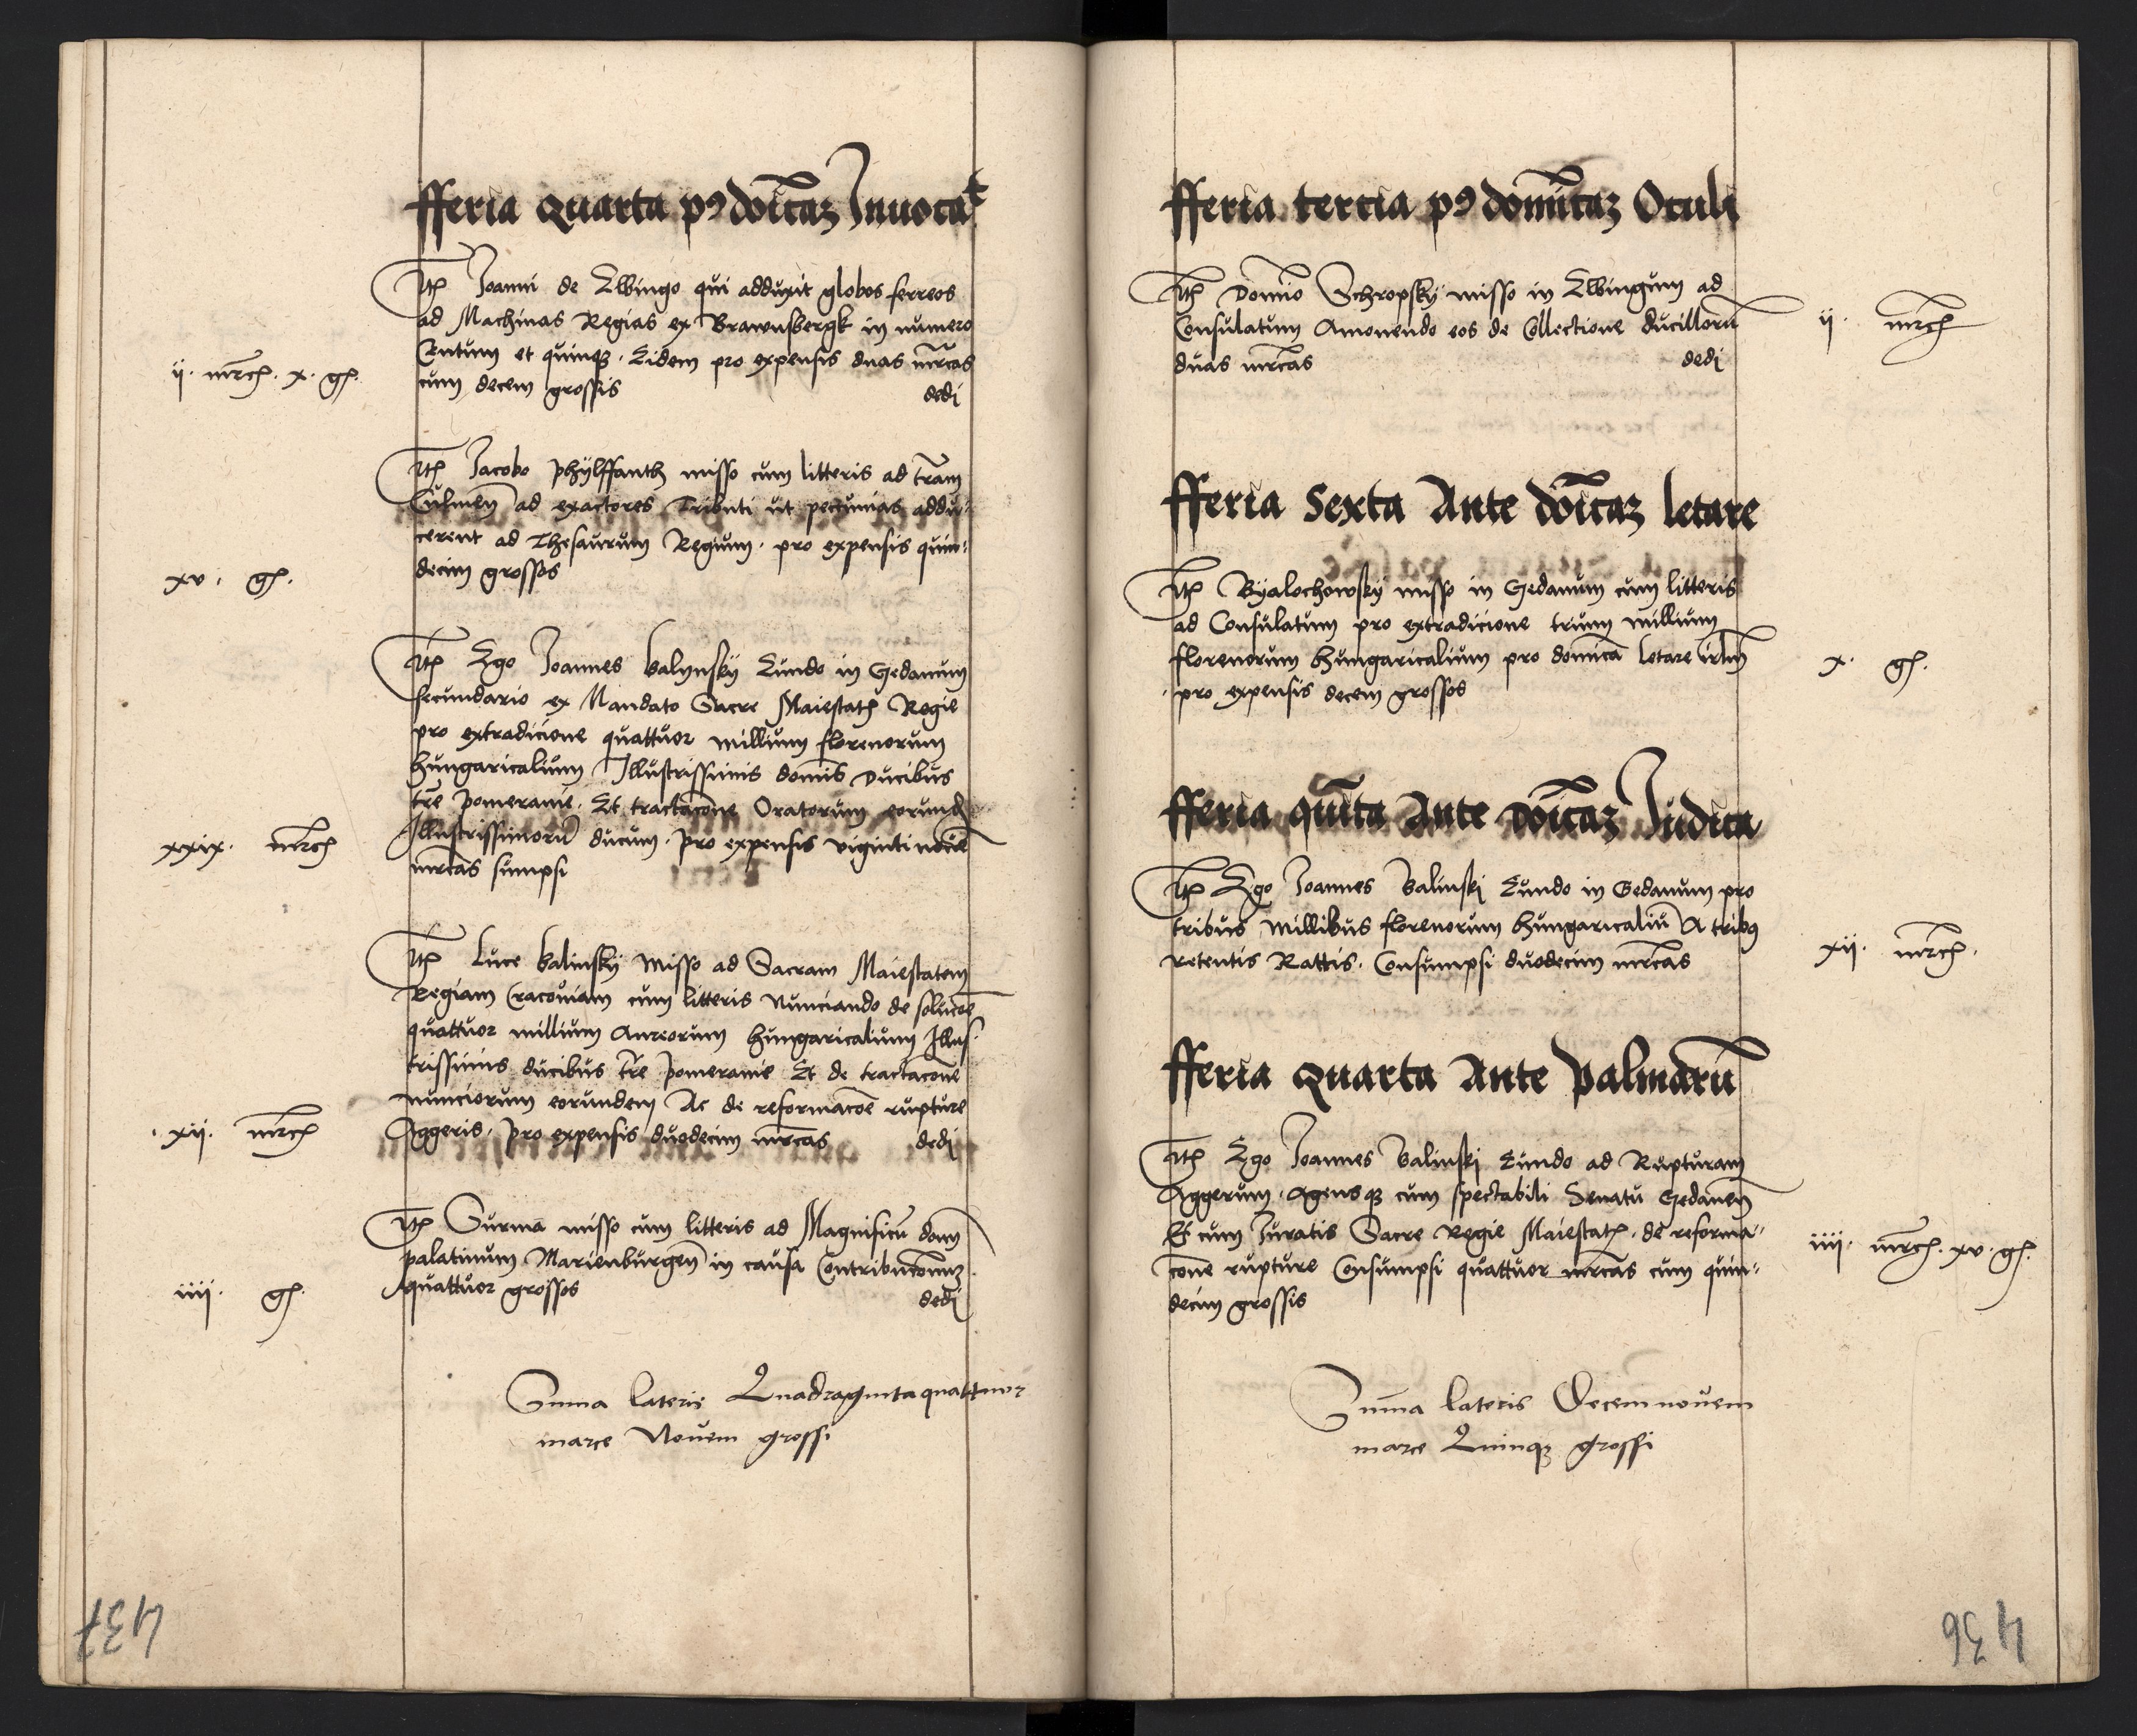 fferia quarta p9 do͞icaꝫ Inuoca͞t
It͞m Joanni de Elbingo qui adduxit globos ferreos
ad Machinas Regias ex Brawnsbergk in numero
Centum et quinqꝫ. Eidem pro expensis duas m͞rcas
cum decem grossis dedi
ij. m͞rcꝭ. x. gꝭ.
It͞m Jacobo phÿlffanth misso cum litteris ad t͞ram
Culmen͞ ad exactores Tributi ut pecunias addu-
cerent ad Thesaurum Regium. pro expensis quin-
decim grossos
xv. gꝭ.
It͞m Ego Joannes balÿnskÿ Eundo in Gedanum
secundario ex Mandato Sacre Maiestatꝭ Regie
pro extradicione quattuor millium florenorum
hungaricalium Illustrissimis dom͞is Ducibus
t͞re pomeranie. Et tractac͞one Oratorum eorund͞
Illustrissimoru͞ ducum. pro expensis viginti noue͞
m͞rcas sumpsi
xxix. m͞rcꝭ
It͞m Luce balinskÿ Misso ad Sacram Maiestatem
Regiam Cracouiam cum litteris Nunciando de soluc͞oe
quattuor millium Aureorum hungaricalium Illus-
trissimis ducibus t͞re pomeranie Et de tractac͞one
nunciorum eorundem Ac de reformac͞oe rupture
Aggeris. pro expensis duodecim m͞rcas dedi
xij. m͞rcꝭ
It͞m Surma misso cum litteris ad Magnificu͞ do͞m
palatinum Marienburgen͞ in causa Contribuc͞onuꝫ
quattuor grossos dedi
iiij. gꝭ.
Su͞ma lateris Quadraginta quattuor
marce Nouem grossi
437
fferia tercia p9 do͞micaꝫ Oculi
It͞m Domi͞o Schropskÿ misso in Elbingum ad
Consulatum Amonendo eos de Collectione ducilloru͞
duas m͞rcas dedi
ij. m͞rcꝭ
fferia Sexta Ante do͞icaꝫ letare
It͞m Bÿalochowskÿ misso in Gedanum cum litteris
ad Consulatum pro extradicione trium millium
florenorum hungaricalium pro domi͞ca letare
pro expensis decem grossos
x. gꝭ.
fferia qui͞ta Ante Do͞icaꝫ Iudica
It͞m Ego Joannes balinski Eundo in Gedanum pro
tribus millibus florenorum hungaricaliu͞ A tribꝫ
retentis Rattis. Consumpsi duodecim m͞rcas
xij. m͞rcꝭ.
fferia quarta Ante palmaru͞
It͞m Ego Joannes balinski Eundo ad Rupturam
Aggerum. Agensqꝫ cum spectabili Senatu Gedanen͞
Et cum Juratis Sacre Regie Maiestatꝭ. de reforma-
c͞one rupture Consumpsi quattuor m͞rcas cum quin-
decim grossis
iiij. m͞rcꝭ. xv. gꝭ.
Su͞ma lateris Decemnouem
marce Quinqꝫ grossi
436